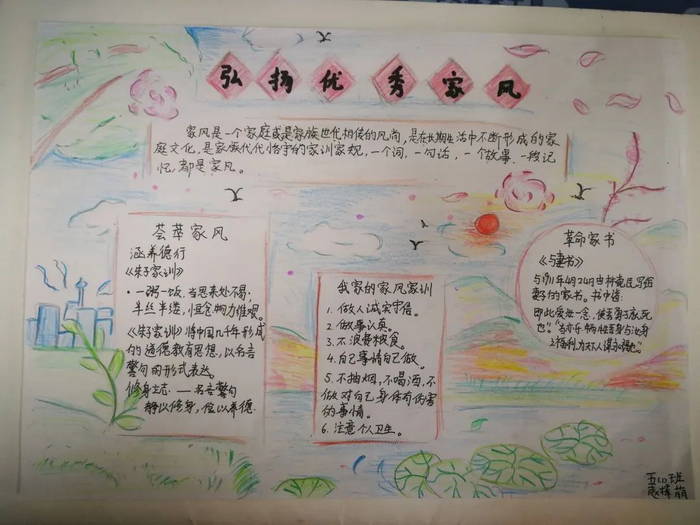 弘扬优秀家风
家风是一个家庭或是家族世代相传的风尚，是在长期生活中不断形成的家
庭文化，是家族代代恪守的家训家规，一个词，一句话，一个故事，一段记
忆，都是家风。
荟萃家风
涵养德行
《朱子家训》
·一粥一饭，当思来处不易；
半丝半缕，恒念物力维艰。
《朱子家训》将中国几千年形成
的道德教育思想，以名言
警句的形式表达。
修身立志——名言警句
静以修身，俭以养德
我家的家风家训
1. 做人诚实守信。
2. 做事认真。
3. 不浪费粮食。
4. 自己事情自己做。
5. 不抽烟，不喝酒，不
做对自己身体有伤害
的事情。
6. 注意个人卫生。
革命家书
《与妻书》
与1911年4月24日由林觉民写给
妻子的家书。书中语：
即此爱汝一念，使吾勇于就死
也"
五(1)班